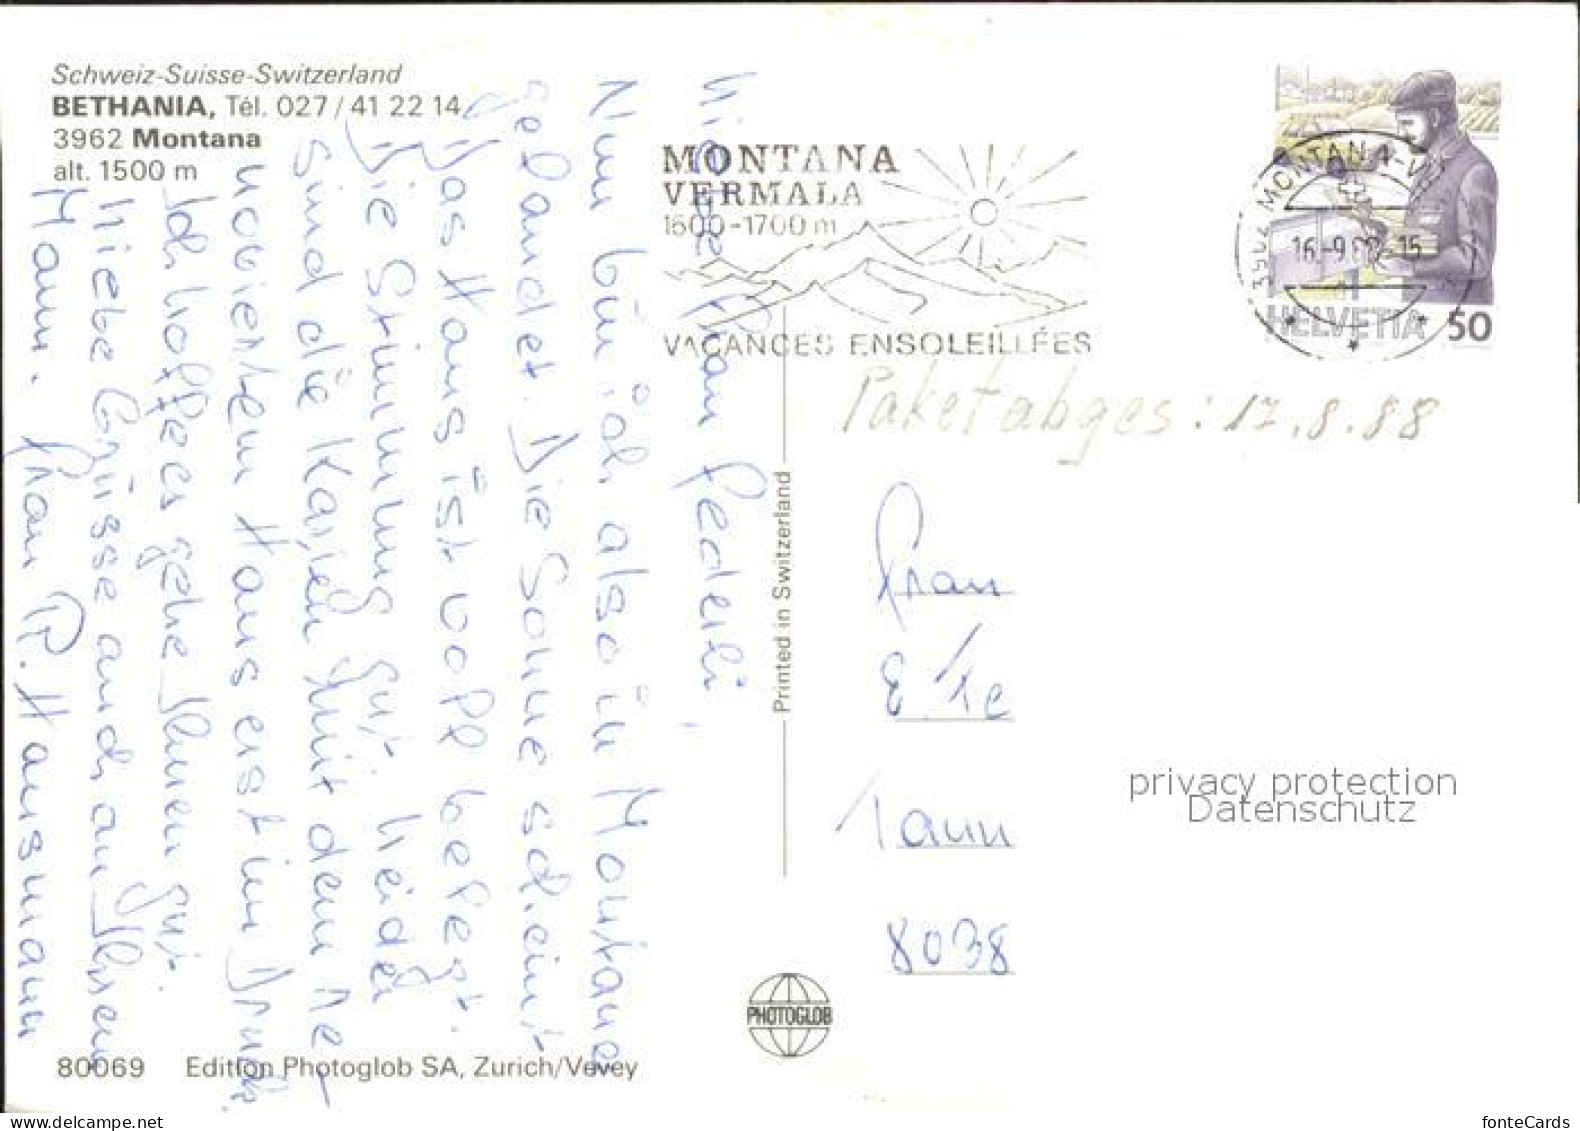 Schweiz-Suisse-Switzerland
BETHANIA, Tél. 027/41 22 14
3962 Montana
alt. 1500 m
MONTANA
VERMALA
1500-1700 m
VACANCES ENSOLEILLÉES
3962 MONTANA-V
16.-9.88-15
HELVETIA 50
Paket abges: 17.8.88
Liebe Frau Federli,
Nun bin ich also in Montana
gelandet. Die Sonne scheint
Das Haus ist voll belegt.
Die Stimmung gut. Leider
sind die Karten mit dem re-
novierten Haus erst im Druck.
Ich hoffe es gehe Ihnen gut.
Liebe Grüsse auch an Ihren
Mann. Frau R. Hausmann
Frau
Tann
8038
Printed in Switzerland
privacy protection
Datenschutz
PHOTOGLOB
80069 Edition Photoglob SA, Zurich/Vevey
www.ansichtskartenversand.com
fonteCards